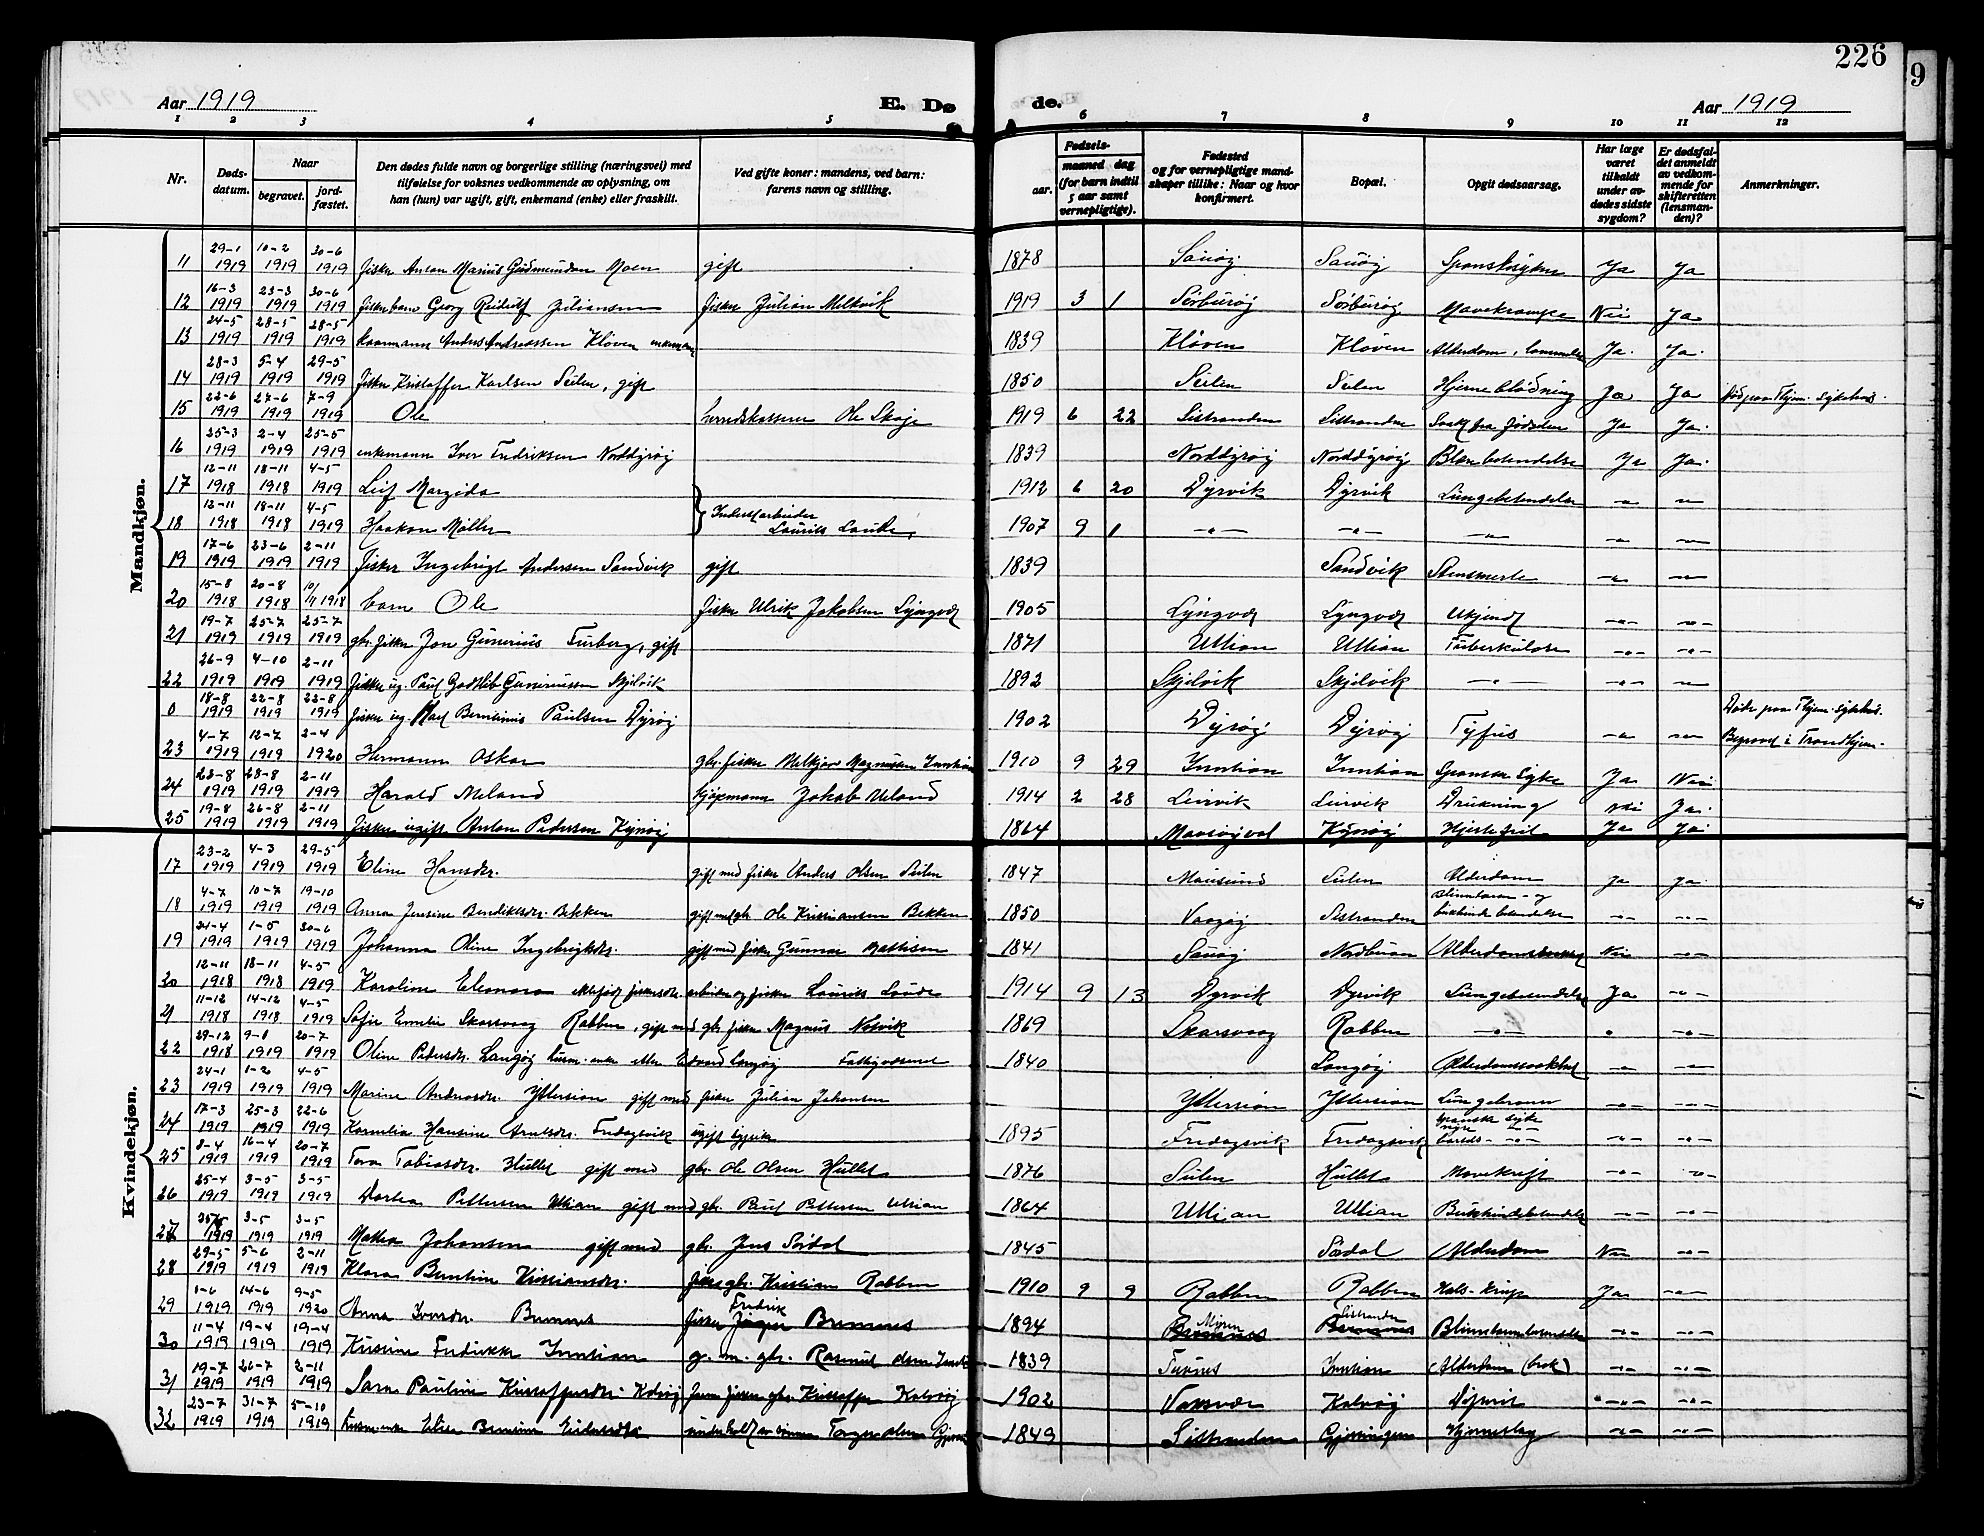 226
9
Aar 1919 E. Dø de. Aar 1919
1 2 3 4 5 6 7 8 9 10 11 12
Nr. Døds-datum. Naar begravet. jord-fæstet. Den dødes fulde navn og borgerlige stilling (næringsvei) med tilføielse for voksnes vedkommende av oplysning, om han (hun) var ugift, gift, enkemand (enke) eller fraskilt. Ved gifte koner: mandens, ved barn: farens navn og stilling. Fødsels- aar. maaned dag (for barn indtil 5 aar samt vernepligtige). Fødested og for vernepligtige mandskaper tillike: Naar og hvor konfirmert. Bopæl. Opgit dødsaarsag. Har læge været tilkaldt under avdødes sidste sygdom? Er dødsfaldet anmeldt av vedkommende for skifteretten (lensmanden)? Anmerkninger.
Mandkjøn.
11 29-1 1919 10-2 1919 30-6 1919 fisker Anton Marius Gudmundsen Moen gift 1878 Sauøy Sauøy Spansksyken Ja Ja
12 16-3 1919 23-3 1919 30-6 1919 fiskerbarn Georg Rudolf Juliansen fisker Julian Melkvik 1919 3 1 Sørburøy Sørburøy Mavekrampe Nei Ja
13 24-5 1919 28-5 1919 28-5 1919 Anders Andreassen Kløven enkemann 1839 Kløven Kløven Alderdom, Ja. Ja.
14 28-3 1919 5-4 1919 29-5 1919 fisker Kristoffer Karlsen Sulen, gift 1850 Sulen Sulen Hjerneblødning Ja Ja Død paa Thjem. Sykehus.
15 22-6 1919 27-6 1919 7-9 1919 Ole herredskasserer Ole Skaje 1919 6 22 Sistranden Sistranden Svak fra fødselen Ja Ja.
16 25-3 1919 2-4 1919 25-5 1919 enkemann Iver Fredriksen Norddyrøy 1839 Norddyrøy Norddyrøy Blærebetendelse Ja Ja.
17 12-11 1918 18-11 1918 4-5 1919 Leif Margido 1912 6 20 Dyrvik Dyrvik Lungebetendelse -"- -"-
18 12-11 1918 18-11 1918 4-5 1919 Haakon Møller } Laurits 1907 9 1 -"- -"- -"- -"- -"-
19 17-6 1919 23-6 1919 2-11 1919 fisker Ingebrigt Andersen Sandvik gift 1839 Sandvik Stensmerte -"- -"-
20 15-8 1918 20-8 1918 10/11 1918 barn Ole fisker Ulrik Jakobsen Lyngvær 1905 Lyngvær Lyngvær Ukjendt -"- -"-
21 19-7 1919 25-7 1919 25-7 1919 gbr. fisker Jon Gunerius Furberg, gift 1871 Uttian Uttian Tuberkulose -"- -"-
22 26-9 1919 4-10 1919 2-11 1919 fisker ug. Paul Godtlib Guneriussen Skjelvik 1892 Skjelvik Skjelvik -"- -"- -"-
0 18-8 1919 22-8 1919 22-8 1919 fisker ug. Karl Berntinus Paulsen Dyrøy 1902 Dyrøy Dyrøy Tyfus -"- -"- Døde paa Thjem. Sykehus. Begravd i Trondhjem.
23 4-7 1919 12-7 1919 2-4 1920 Hermann Oskar gbr. fisker Melkjør Magnussen Inntian 1910 9 29 Inntian Inntian Spanske Syke Ja Nei
24 23-8 1919 28-8 1919 2-11 1919 Harald Meland kjøpmann Jakob Meland 1914 2 28 Leirvik Leirvik Drukning Nei Ja.
25 19-8 1919 26-8 1919 2-11 1919 fisker ugift Anton Pedersen Kyrøy 1864 Maasøyval Kyrøy Hjertefeil Ja Ja.
Kvindekjøn.
17 23-2 1919 4-3 1919 29-5 1919 Eline Hansdr. gift med fisker Anders Olsen Sulen 1847 Mausund Sulen Alderdom Ja Ja.
18 4-7 1919 10-7 1919 19-10 1919 Anna Jensine Bendiktsdr. Bekken gift med gbr. Ole Kristiansen Bekken 1850 Vaagøy Sistranden Blindtarm- og bukhindebetendelse -"- -"-
19 24-4 1919 1-5 1919 30-6 1919 Johanna Oline Ingebrigtsdr. gift med fisker Gunnar Mathisen 1841 Sauøy Nordburøen Alderdomssvakhet Nei -"-
20 12-11 1918 18-11 1918 4-5 1919 Karoline Eleonora arbeider og fisker Laurits 1914 9 13 Dyrvik Dyrvik Lungebetendelse Ja -"-
21 11-12 1918 14-12 1918 4-5 1919 Sofie Emelie Skarsvaag Rabben, gift med gbr. fisker Magnus 1869 Skarsvaag Rabben -"- " -"-
22 29-12 1918 9-1 1919 20-7 1919 Oline Pedersdr. Langøy husm. enke efter Edvard Langøy Fattigvæsenet 1840 Langøy Alderdomssvakhet -"- -"-
23 24-1 1919 1-2 1919 4-5 1919 Marine Andreasdr. Yttersian gift med fisker Julian Johansen Yttersian Yttersian -"- -"-
24 17-3 1919 25-3 1919 22-6 1919 Kornelia Hansine Arntsdr. Fredagsvik ugift 1895 Fredagsvik Fredagsvik spanske syke -"- -"-
25 8-4 1919 16-4 1919 20-7 1919 Tobiasdr. Hullet gift med gbr. Ole Olsen Hullet 1876 Sulen Hullet Mavekreft -"- -"-
26 25-4 1919 3-5 1919 3-5 1919 Dortea Pettersen Uttian gift med gbr. Paul Pettersen Uttian 1864 Uttian Uttian Bukhindebetendelse -"- -"-
27 1919 3-5 1919 3-5 1919 Johansen gift med gbr. Jens Sørdal 1845 Sørdal Alderdom Nei -"-
28 29-5 1919 5-6 1919 2-11 1919 Klara Berntine Kristiansdr. gbr. Kristian Rabben 1910 9 9 Rabben Rabben Hals-krup Ja -"-
29 1-6 1919 14-6 1919 9-5 1920 Anna Iversdr. Bremnes fisker Fredrik Bremnes 1894 Bremnes Sistranden Bremnes Blindtarmbetendelse -"- -"-
30 11-4 1919 19-4 1919 19-4 1919 Kristine Fredrikke Inntian g. m. gbr. Rasmus Olsen 1839 Inntian Alderdom (brok) -"- -"-
31 19-7 1919 26-7 1919 2-11 1919 Sara Pauline Kristoffersdr. Kalvøy gbr. Kristoffer Kalvøy 1902 Kalvøy -"- -"-
32 23-7 1919 31-7 1919 5-10 1919 Elisa 1849 Sistranden Hjerneslag -"- -"-